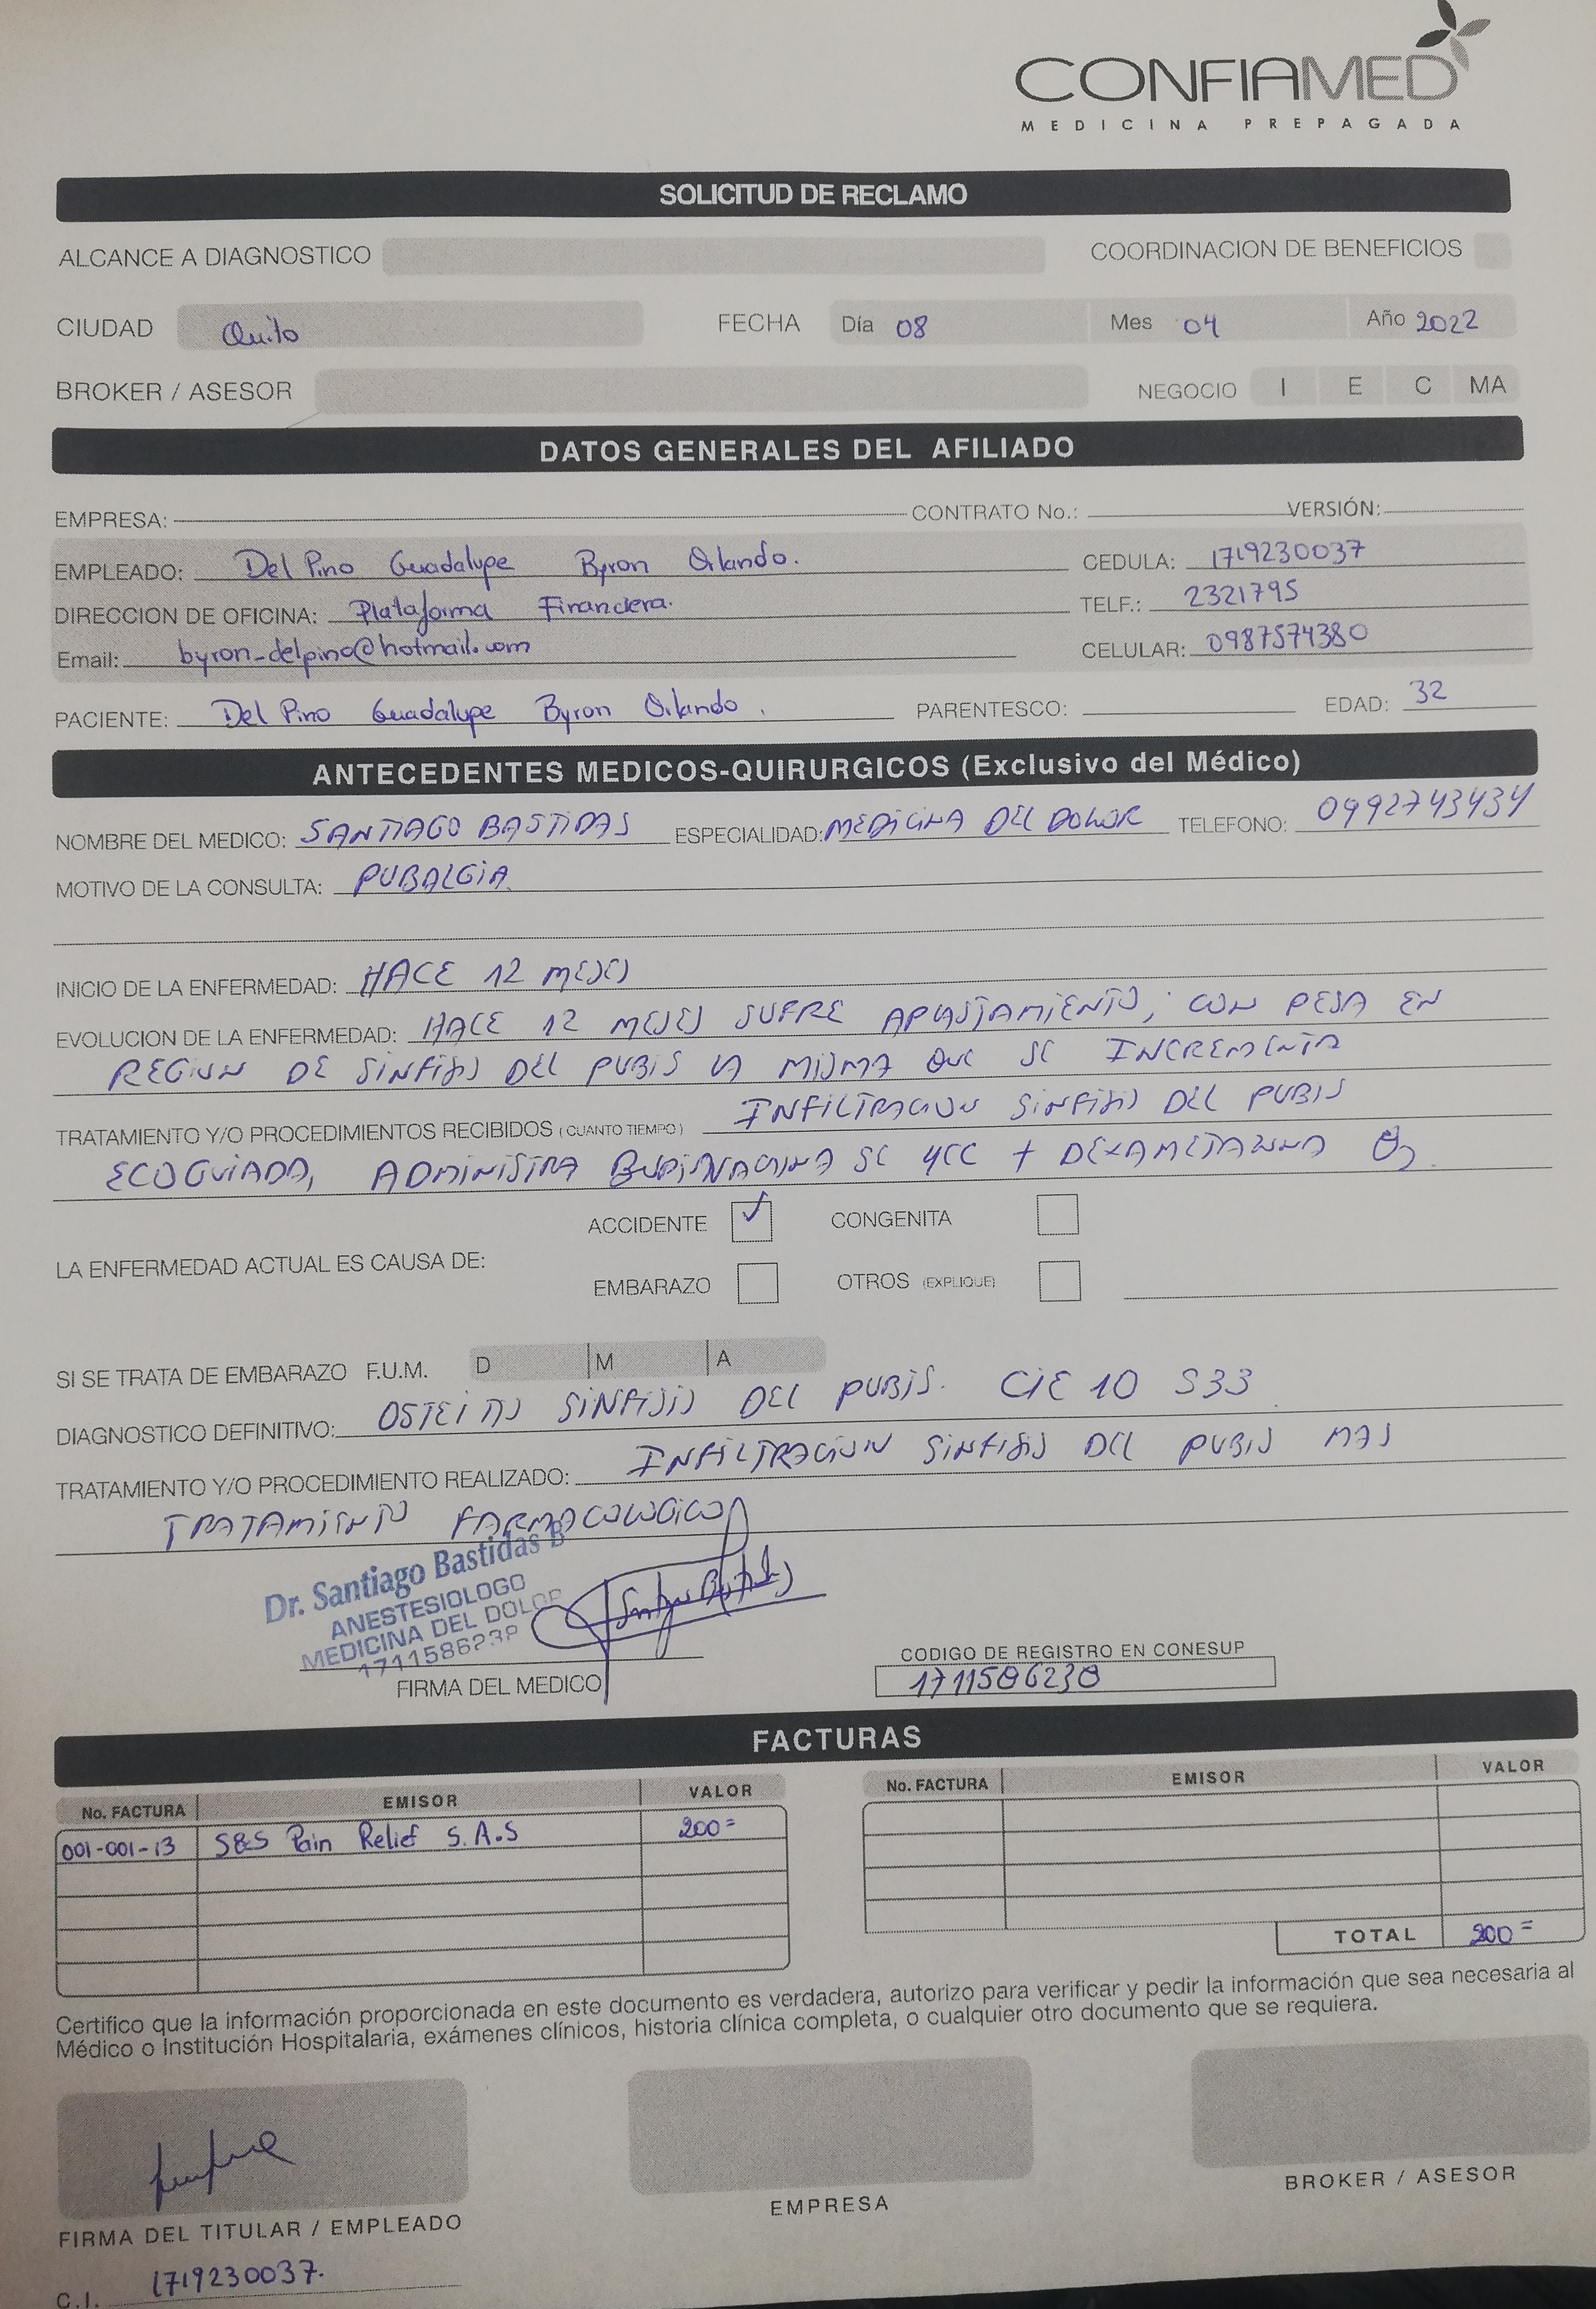 CONFIAMED
MEDICINA PREPAGADA
SOLICITUD DE RECLAMO
ALCANCE A DIAGNOSTICO COORDINACION DE BENEFICIOS
CIUDAD Quito FECHA Día 08 Mes 04 Año 2022
BROKER / ASESOR NEGOCIO I E C MA
DATOS GENERALES DEL AFILIADO
EMPRESA: CONTRATO No.: VERSIÓN:
EMPLEADO: Del Pino Guadalupe Byron Orlando. CEDULA: 1719230037
DIRECCION DE OFICINA: Plataforma Financiera. TELF.: 2321795
Email: byron-delpino@hotmail.com CELULAR: 0987574380
PACIENTE: Del Pino Guadalupe Byron Orlando. PARENTESCO: EDAD: 32
ANTECEDENTES MEDICOS-QUIRURGICOS (Exclusivo del Médico)
NOMBRE DEL MEDICO: SANTIAGO BASTIDAS ESPECIALIDAD: MEDICINA DEL DOLOR TELEFONO: 0992743434
MOTIVO DE LA CONSULTA: PUBALGIA
INICIO DE LA ENFERMEDAD: HACE 12 MESES
EVOLUCION DE LA ENFERMEDAD: HACE 12 MESES SUFRE APLASTAMIENTO, CON PESA EN
REGION DE SINFISIS DEL PUBIS LA MISMA QUE SE INCREMENTA
TRATAMIENTO Y/O PROCEDIMIENTOS RECIBIDOS (CUANTO TIEMPO) INFILTRACION SINFISIS DEL PUBIS
ECOGUIADA, ADMINISTRA BUPIVACAINA SE 4CC + DEXAMETASONA
ACCIDENTE ✓ CONGENITA
LA ENFERMEDAD ACTUAL ES CAUSA DE:
EMBARAZO OTROS (EXPLIQUE)
SI SE TRATA DE EMBARAZO F.U.M. D M A
DIAGNOSTICO DEFINITIVO: OSTEITIS SINFISIS DEL PUBIS. CIE 10 S33
TRATAMIENTO Y/O PROCEDIMIENTO REALIZADO: INFILTRACION SINFISIS DEL PUBIS MAS
TRATAMIENTO FARMACOLOGICO
Dr. Santiago Bastidas B
ANESTESIOLOGO
MEDICINA DEL DOLOR
FIRMA DEL MEDICO
CODIGO DE REGISTRO EN CONESUP
1711586238
FACTURAS
No. FACTURA EMISOR VALOR No. FACTURA EMISOR VALOR
001-001-13 S&S Pain Relief S.A.S 200=
TOTAL 200=
Certifico que la información proporcionada en este documento es verdadera, autorizo para verificar y pedir la información que sea necesaria al
Médico o Institución Hospitalaria, exámenes clínicos, historia clínica completa, o cualquier otro documento que se requiera.
FIRMA DEL TITULAR / EMPLEADO EMPRESA BROKER / ASESOR
C.I. 1719230037.